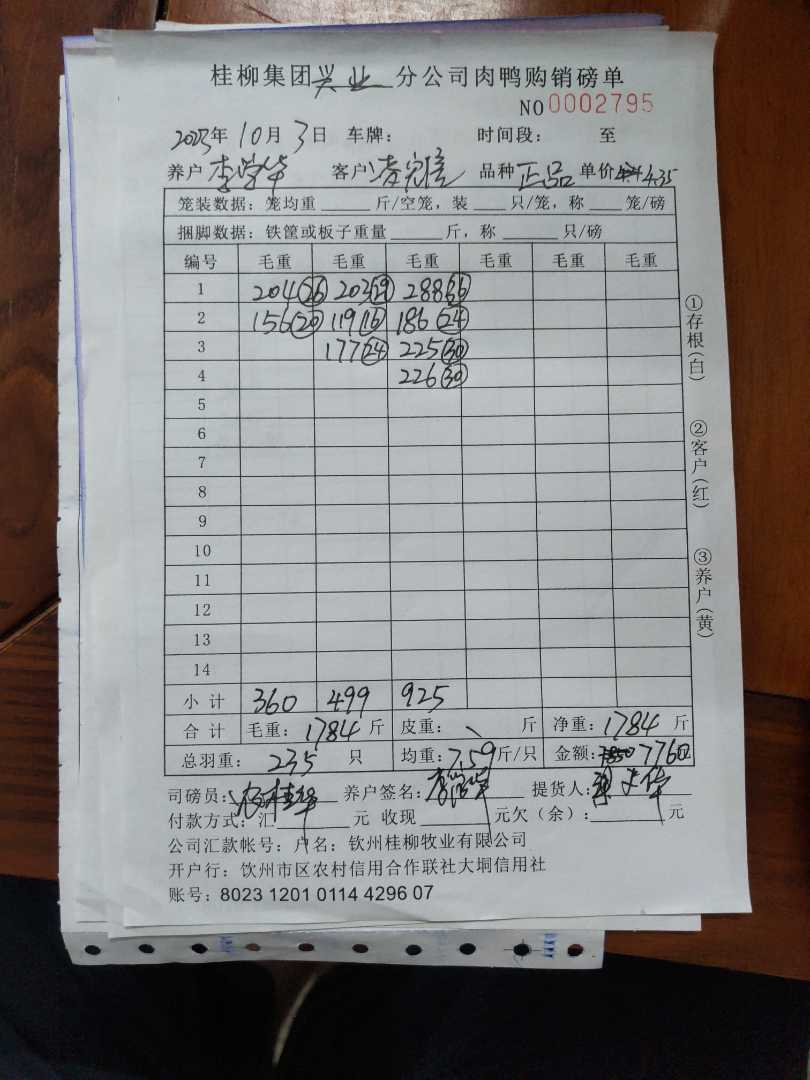 桂柳集团兴业分公司肉鸭购销磅单
NO 0002795
2023年10月3日 车牌: 时间段: 至
养户 李学华 客户 凌 信 品种 正品 单价 4.35
笼装数据: 笼均重 斤/空笼, 装 只/笼, 称 笼/磅
捆脚数据: 铁筐或板子重量 斤, 称 只/磅
编号 毛重 毛重 毛重 毛重 毛重 毛重
1 204 26 203 29 288 36
2 156 20 119 16 186 24
3 177 24 225 30
4 226 30
5
6
7
8
9
10
11
12
13
14
小计 360 499 925
合计 毛重: 1784 斤 皮重: 斤 净重: 1784 斤
总羽重: 235 只 均重: 7.59 斤/只 金额: 7760
司磅员: 桂华 养户签名: 李学华 提货人:
付款方式: 汇 元 收现 元欠(余): 元
公司汇款帐号: 户名: 钦州桂柳牧业有限公司
开户行: 钦州市区农村信用合作联社大垌信用社
账号: 8023 1201 0114 4296 07
①存根(白)
②客户(红)
③养户(黄)